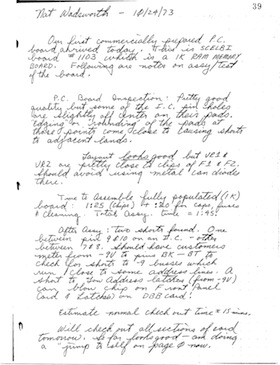 39
Nat Wadsworth - 10/24/73
Our first commercially prepared P.C.
board arrived today. This is SCELBI
board #1103 which is a 1K RAM MEMORY
BOARD. Following are notes on assy/test
of the board.
P.C. Board Inspection: Pretty good
quality but some of the I.C. pin holes
are slightly off center on their pads.
Edging or rounding of the pads at
those points come close to causing shorts
to adjacent lands.
Layout looks good but
are pretty close to chips
should avoid using metal can diodes
there.
Time to assemble fully populated (1K)
board: 1:25 (chips) + :20 for caps, fuses
& cleaning. Total Assy. time = 1:45!
After Assy: two shorts found. One
between pins 9 & 10 on an I.C. - other
between 7 & 8. Should have customers
meter from -9V to pins
check for shorts to -9 busses which
run close to some address lines. A
short to Address latches (from -9V)
can blow chips on Front Panel
Card & Latches on DBB card!
Estimate normal check out time = 15 mins.
Will check out all sections of card
tomorrow. So far looks good - am doing
a jump to self on page now.